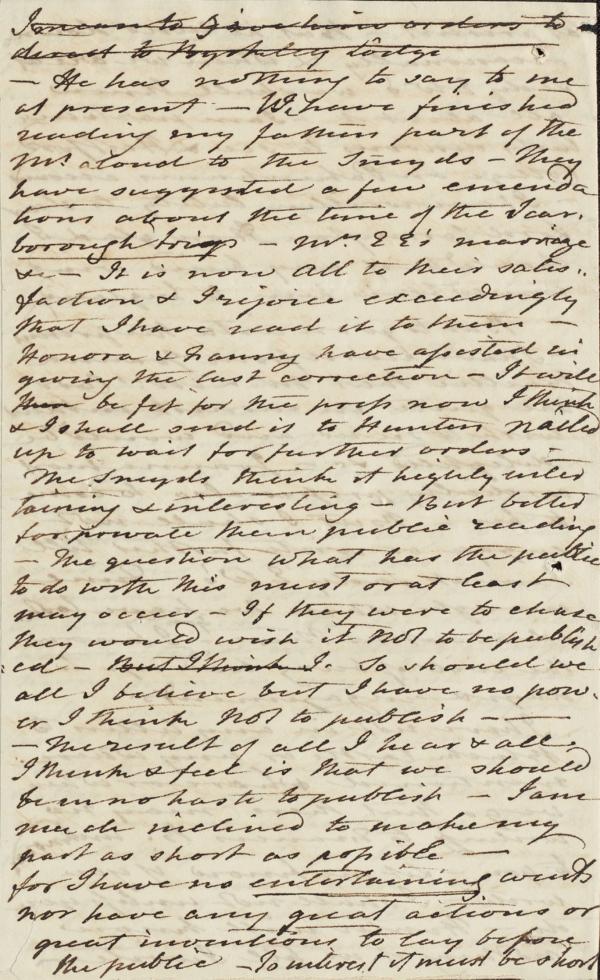 I mean to give him orders to
direct to Byrkeley Lodge
— He has nothing to say to me
at present — We have finished
reading my fathers part of the
MS. aloud to the Sneyds — They
have suggested a few emenda
tions about the time of the Scar.
borough trip — Mrs EE's marriage
&c — It is now all to their satis..
faction & I rejoice exceedingly
that I have read it to them —
Honora & Fanny have assisted in
giving the last correction — It will
then be fit for the press now I think
& I shall send it to Hunters nailed
up to wait for further orders —
The Sneyds think it highly enter
taining & interesting — But better
for private than public reading
— The question what has the public
to do with this must or at least
may occur — If they were to chuse
they would wish it not to be publish
ed — But I think I. So should we
all I believe but I have no pow-
er I think not to publish — —
— The result of all I hear & all
I think & feel is that we should
be in no haste to publish — I am
much inclined to make my
part as short as possible —
for I have no entertaining events
nor have any great actions or
great inventions to lay before
the public — To interest it must be short